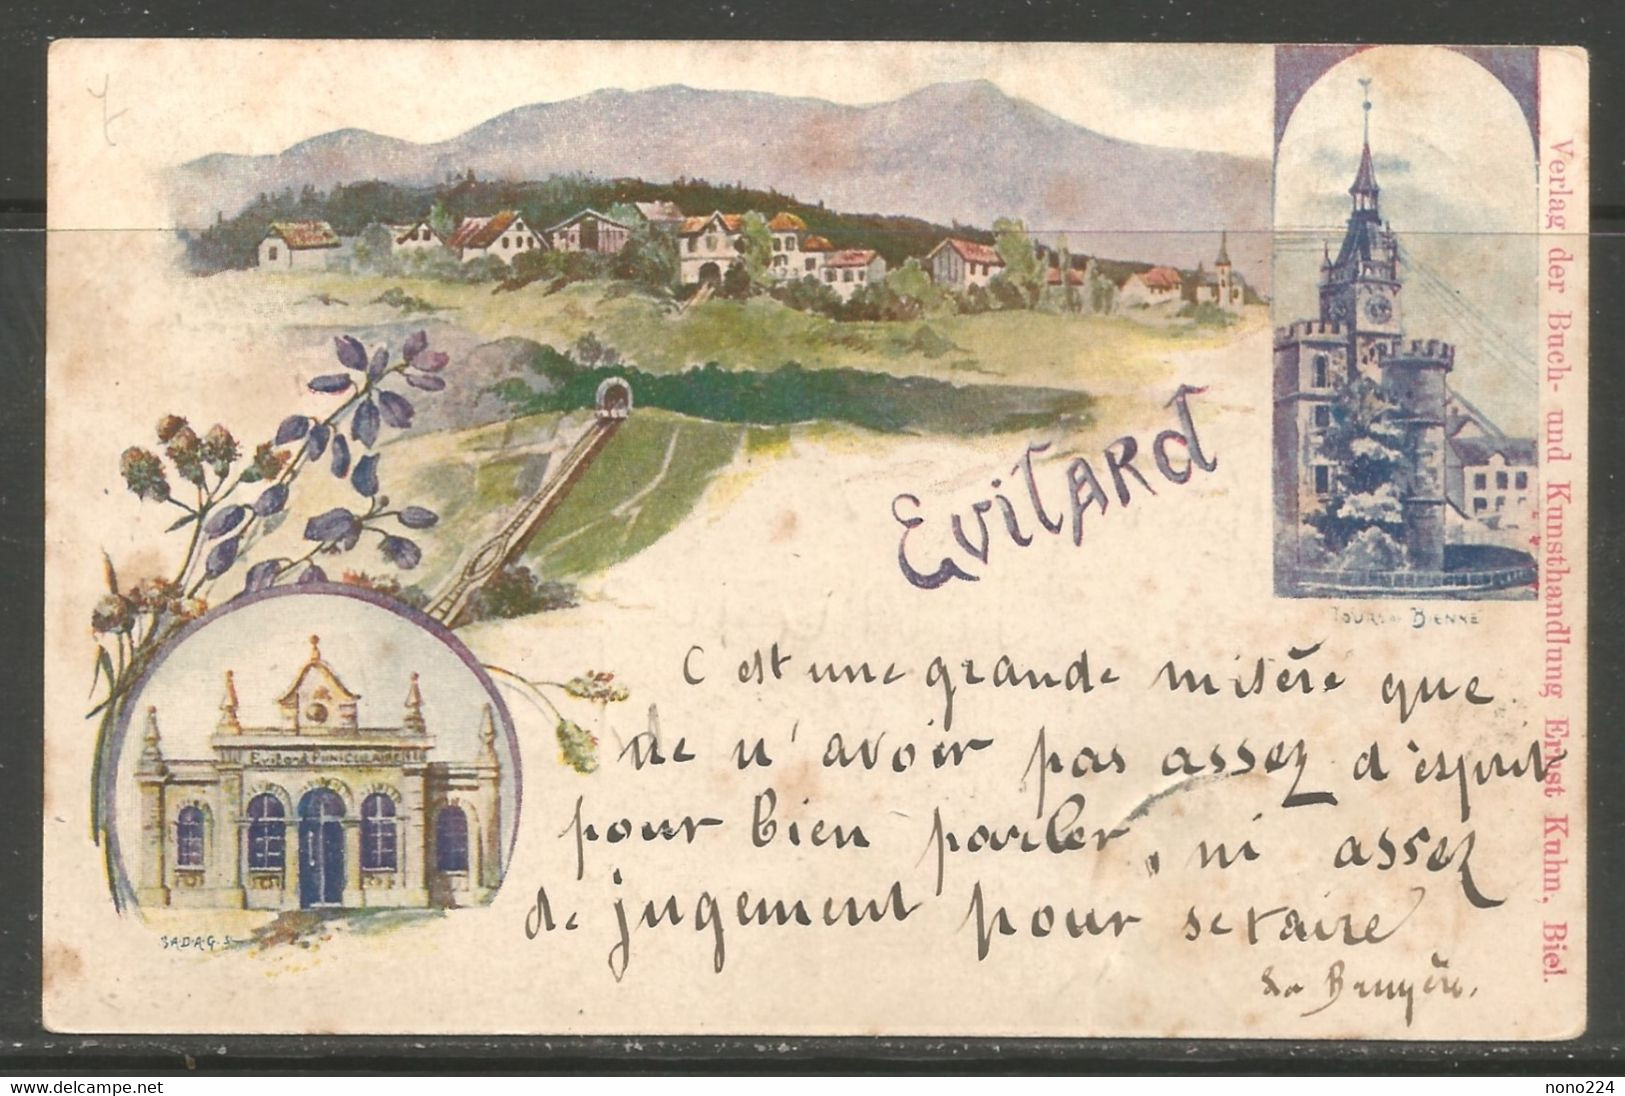 Evitard
TOURS DE BIENNE
Verlag der Buch- und Kunsthandlung Ernst Kuhn, Biel.
Evitard FUNICULAIRE
S.A.D.A.G.
C'est une grande misère que
de n'avoir pas assez d'esprit
pour bien parler, ni assez
de jugement pour se taire
La Bruyère.
www.delcampe.net
nono224